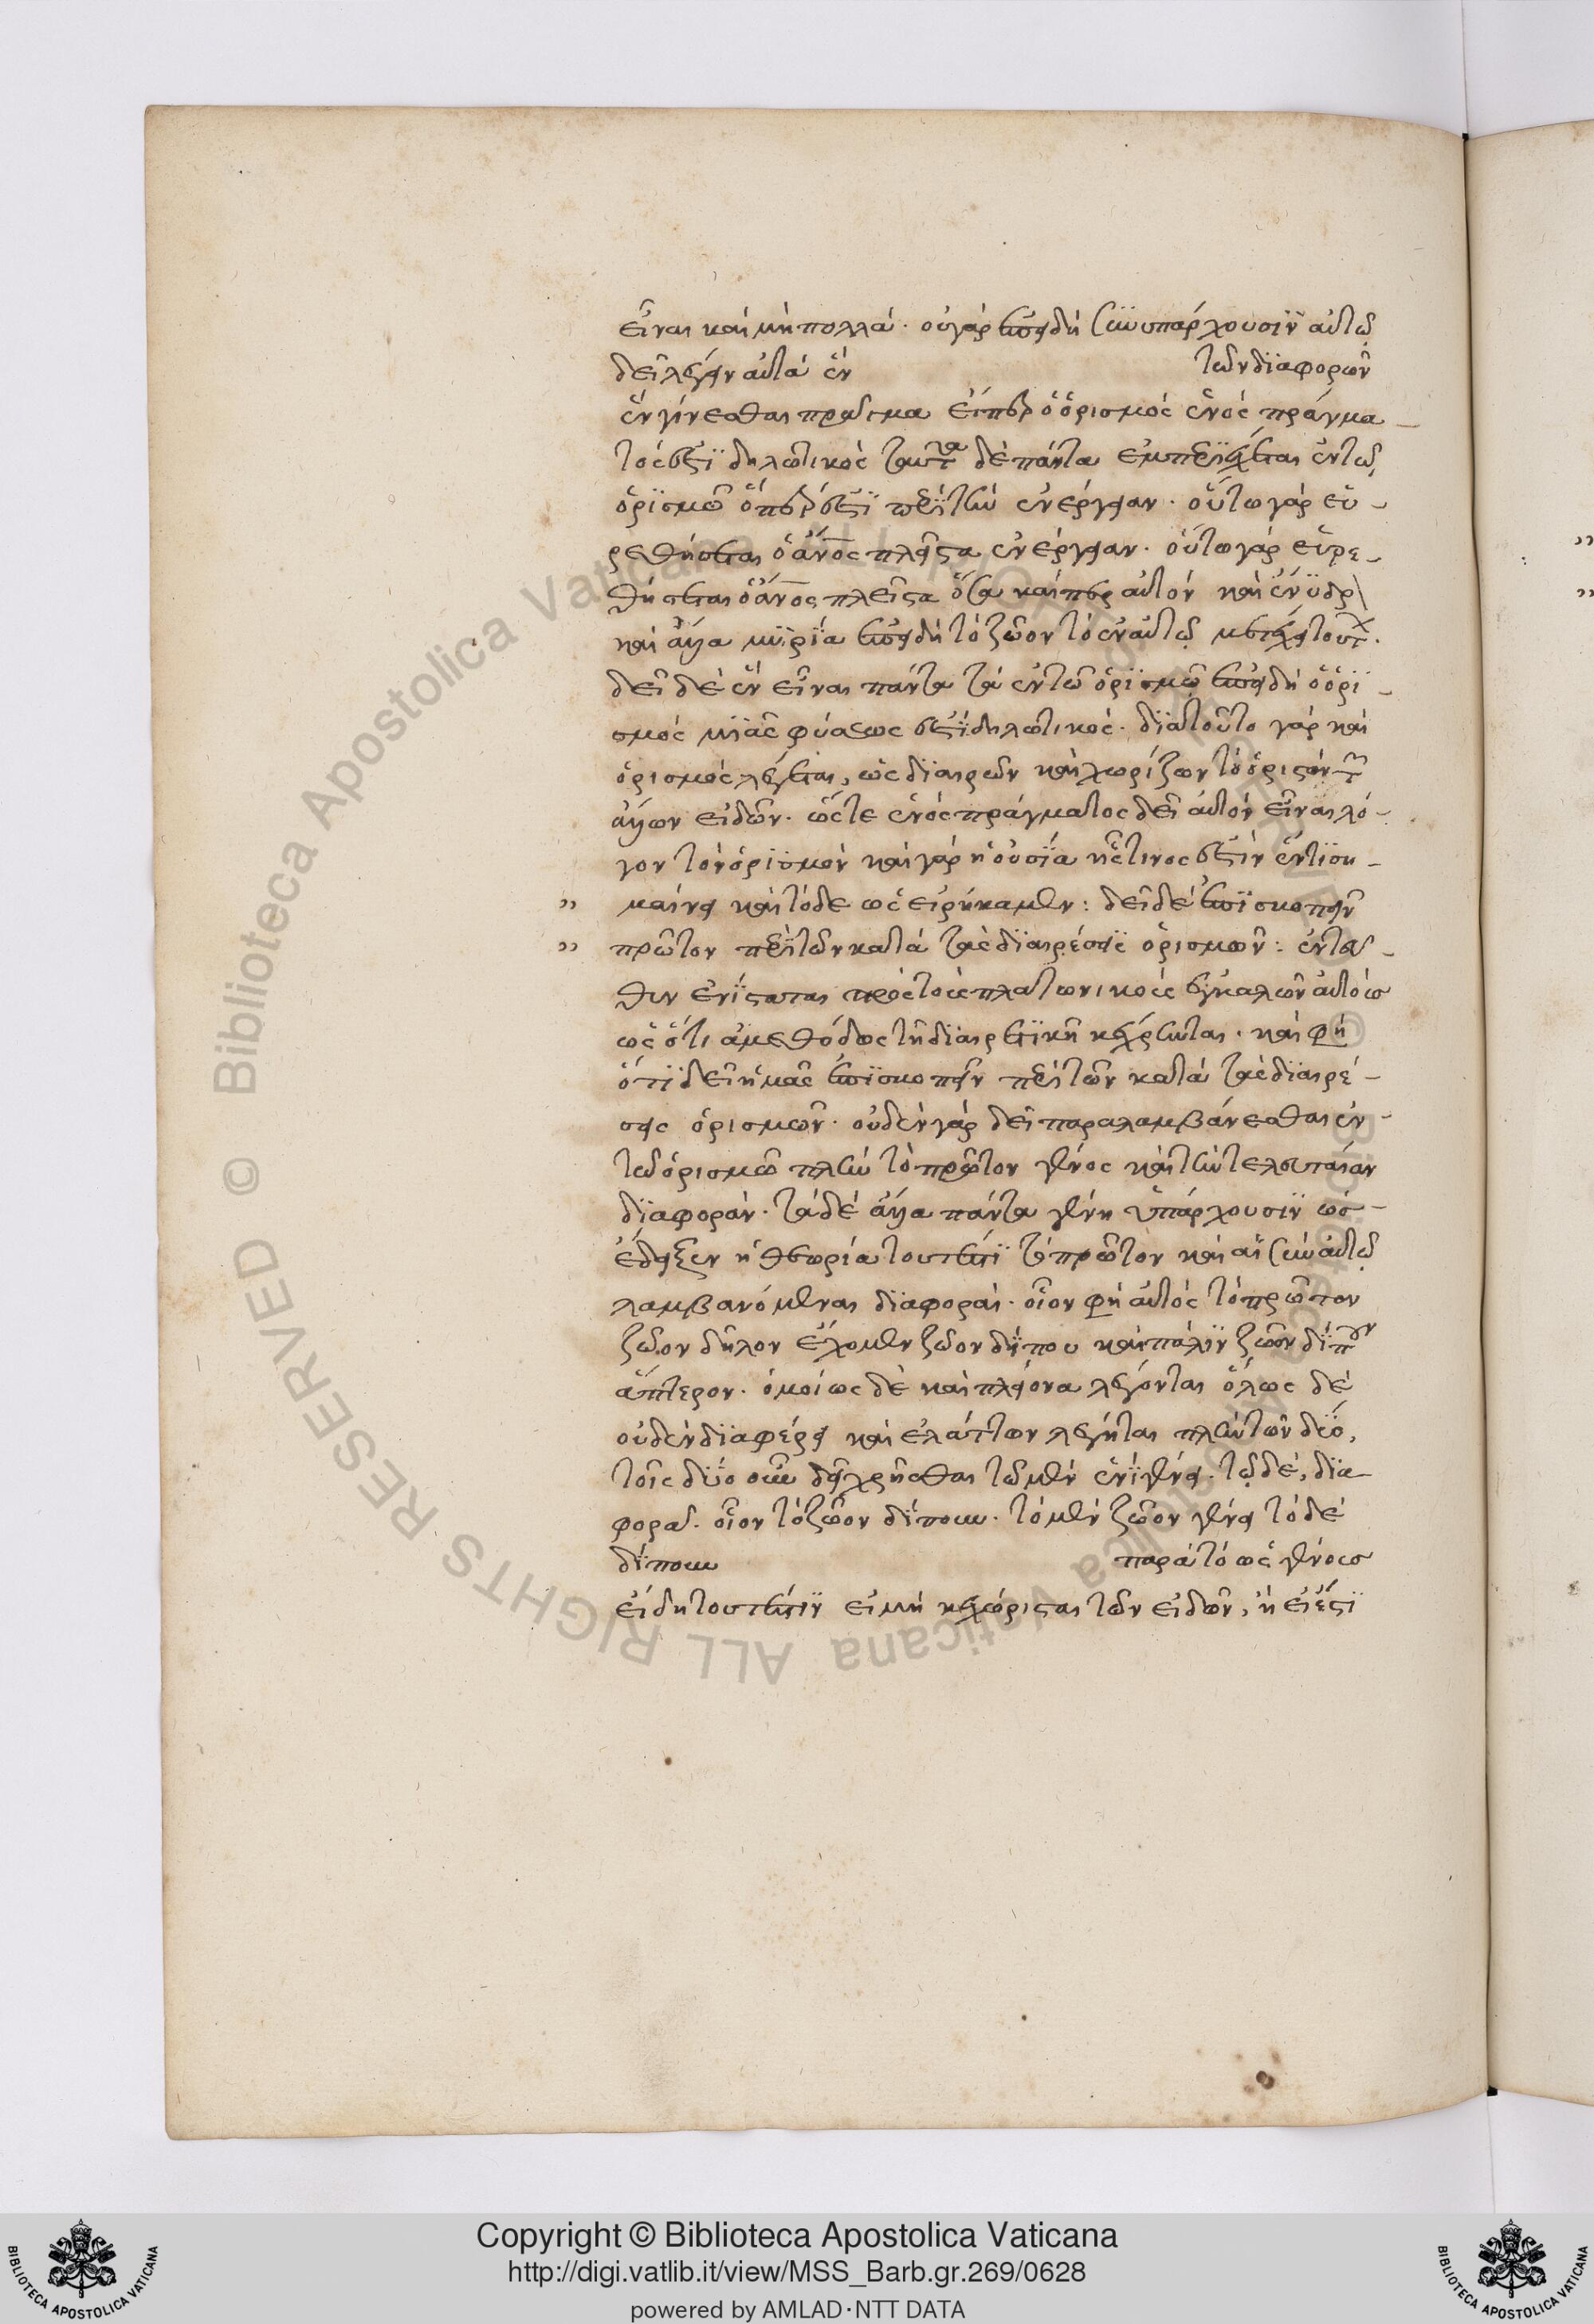 εἶναι καὶ μὴ πολλά. οὐ γὰρ ἐπειδὴ ἐνυπάρχουσιν αὐτῷ
δεῖ λέγειν αὐτὰ ἓν τῶν διαφορῶν
ἓν γίνεσθαι πρᾶγμα εἴπερ ὁ ὁρισμὸς ἑνὸς πράγμα-
τός ἐστι δηλωτικὸς ταῦτα δὲ πάντα ἐμπεριέχεται ἐν τῷ
ὁρισμῷ ὅπερ ἐστὶ περὶ τὴν ἐνέργειαν. οὕτω γὰρ εὑ-
ρεθήσεται ὁ ἄνος πλεῖστα ἐνέργειαν. οὕτω γὰρ εὑρε-
θήσεται ὁ ἄνος πλεῖστα ὄντα καίπερ αὐτὸν καὶ ἔνυδρ
καὶ ἄλλα μυρία ἐπειδὴ τὸ ζῶον τὸ ἐν αὐτῷ μετέχει τούτ.
δεῖ δὲ ἓν εἶναι πάντα τὰ ἐν τῷ ὁρισμῷ ἐπειδὴ ὁ ὁρι-
σμὸς μιᾶς φύσεώς ἐστι δηλωτικός. διὰ τοῦτο γὰρ καὶ
ὁρισμὸς λέγεται, ὡς διαιρῶν καὶ χωρίζων τὸ ὁριστὸν τ
ἄλλων εἰδῶν. ὥστε ἑνὸς πράγματος δεῖ αὐτὸν εἶναι λό-
γον τὸν ὁρισμὸν καὶ γὰρ ἡ οὐσία ἧς τινος ἐστὶν ἕν τι ση-
μαίνει καὶ τόδε ὡς εἰρήκαμεν: δεῖ δὲ ἐπισκοπεῖν
πρῶτον περὶ τῶν κατὰ τὰς διαιρέσεις ὁρισμῶν: ἐνταῦ-
θεν ἐνίσταται πρὸς τοὺς πλατωνικοὺς ἐγκαλῶν αὐτοὺς
ὡς ὅτι ἀμεθόδως τῇ διαιρετικῇ κέχρηνται. καὶ φη
ὅτι δεῖ ἡμᾶς ἐπισκοπεῖν περὶ τῶν κατὰ τὰς διαιρέ-
σεις ὁρισμῶν. οὐδὲν γὰρ δεῖ παραλαμβάνεσθαι ἐν
τῷ ὁρισμῷ πλὴν τὸ πρῶτον γένος καὶ τὴν τελευταίαν
διαφοράν. τὰ δὲ ἄλλα πάντα γένη ὑπάρχουσιν ὡς
ἔδειξεν ἡ θεωρία τουτέστι τὸ πρῶτον καὶ αἱ σὺν αὐτῷ
λαμβανόμεναι διαφοραί. οἷον φη αὐτὸς τὸ πρῶτον
ζῶον δῆλον ἐχόμεν ζῶον δίπου καὶ πάλιν ζῶον δίπουν
ἄπτερον. ὁμοίως δὲ καὶ πλείονα λέγονται ὅλως δὲ
οὐδὲν διαφέρει καὶ ἐλάττων λέγηται πλὴν τῶν δύο,
τοῖς δύο οὖν δεῖ χρῆσθαι τῷ μὲν ἑνὶ γένει. τῷ δὲ, δια
φορᾷ. οἷον τὸ ζῶον δίπουν. τὸ μὲν ζῶον γένει τὸ δὲ
δίπουν παρὰ τὸ ὡς γένους
εἴδη τουτέστιν εἰ μὴ κεχώρισται τῶν εἰδῶν, ἢ εἰ ἔστι
Copyright © Biblioteca Apostolica Vaticana
http://digi.vatlib.it/view/MSS_Barb.gr.269/0628
powered by AMLAD·NTT DATA